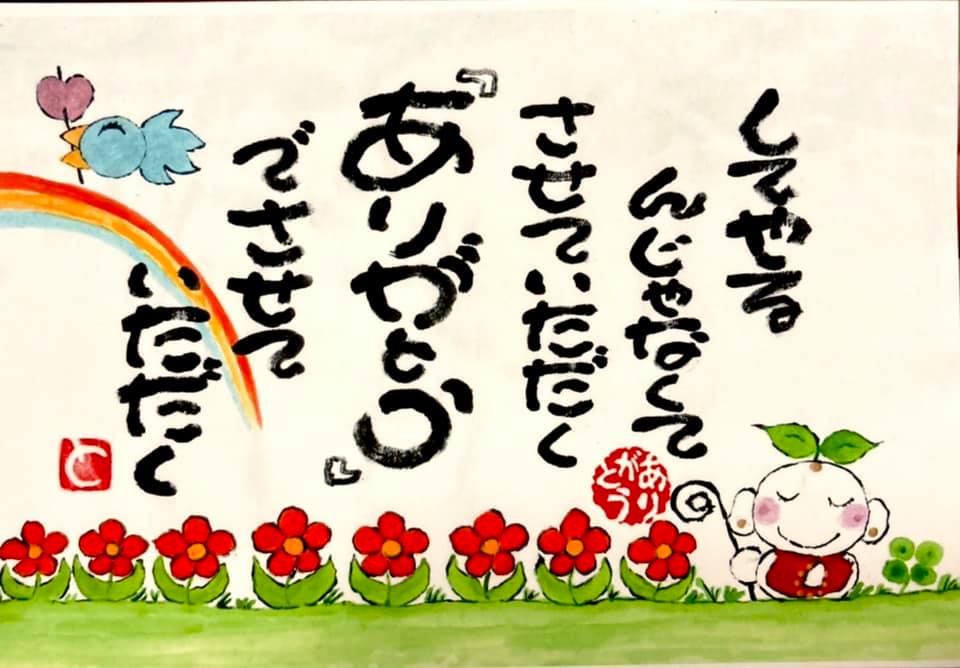 してやる
んじゃなくて
させていただく
『ありがとう』
でさせて
いただく
ありがとう
と